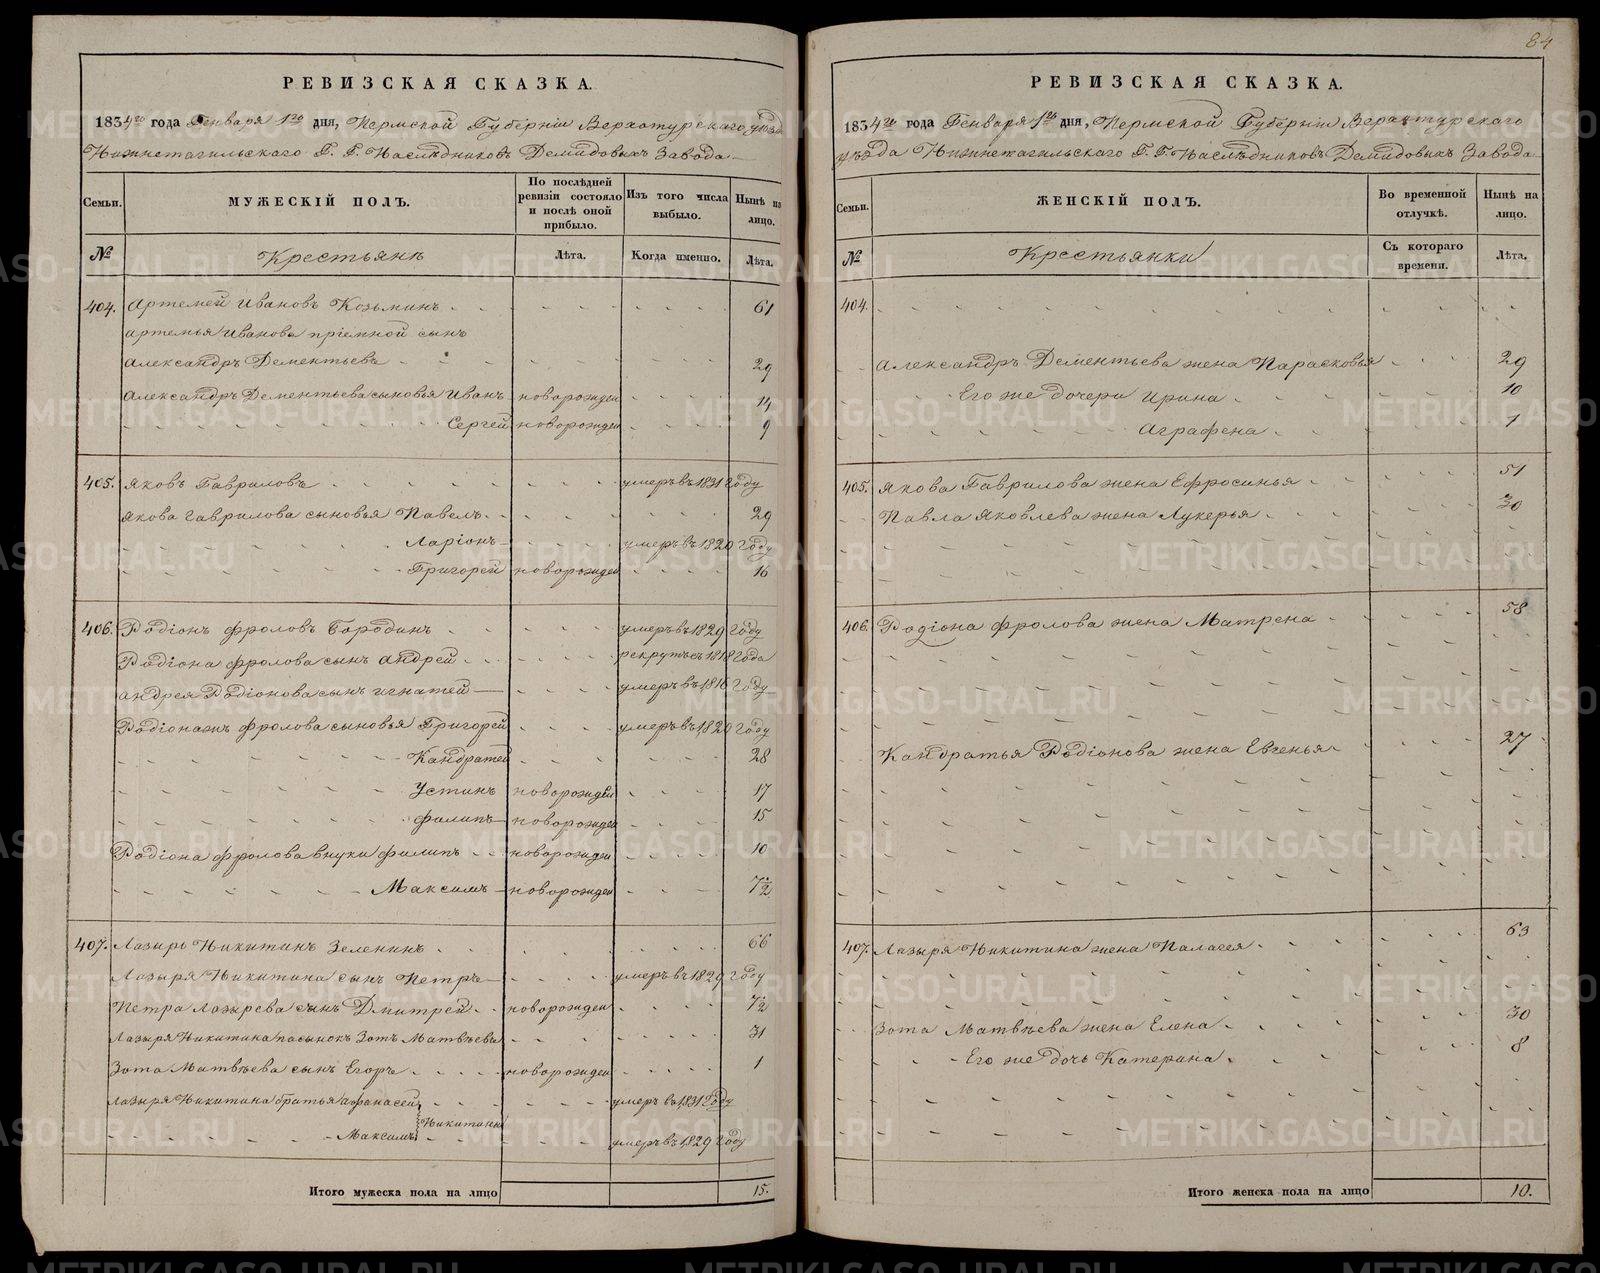 84
РЕВИЗСКАЯ СКАЗКА.
1834го года Генваря 1го дня, Пермской Губерніи Верхотурскаго уѣзда
Нижнетагильскаго Г. Г. Наслѣдниковъ Демидовыхъ Завода
Семьи. МУЖЕСКІЙ ПОЛЪ. По послѣдней ревизіи состояло и послѣ оной прибыло. Изъ того числа выбыло. Нынѣ на лицо.
№ Крестьянъ Лѣта. Когда именно. Лѣта.
404. Артемей Ивановъ Козьминъ 61
Артемья Иванова пріемной сынъ
Александръ Дементьевъ 29
Александръ Дементьева сыновья Иванъ новорожден 14
Сергей новорожден 9
405. Яковъ Гавриловъ умеръ въ 1831 году
Якова Гаврилова сыновья Павелъ 29
Ларіонъ умеръ въ 1820 году
Григорей новорожден 16
406. Родіонъ Фроловъ Бородинъ умеръ въ 1829 году
Родіона Фролова сынъ Андрей рекрутъ съ 1818 года
Андрея Родіонова сынъ Игнатей умеръ въ 1816 году
Родіона жъ Фролова сыновья Григорей умеръ въ 1820 году
Кандратей 28
Устинъ новорожден 17
Фалипъ новорожден 15
Родіона Фролова внуки Филипъ новорожден 10
Максимъ новорожден 7½
407. Лазырь Никитинъ Зеленинъ 66
Лазыря Никитина сынъ Петръ умеръ въ 1829 году
Петра Лазырева сынъ Дмитрей новорожден 7½
Лазыря Никитина пасынокъ Зотъ Матвѣевъ 31
Зота Матвѣева сынъ Егоръ новорожден 1
Лазыря Никитина братья Афанасей умеръ въ 1831 году
Никитины
Максимъ умеръ въ 1829 году
Итого мужеска пола на лицо 15.
РЕВИЗСКАЯ СКАЗКА.
1834го года Генваря 1го дня, Пермской Губерніи Верхотурскаго
уѣзда Нижнетагильскаго Г. Г. Наслѣдниковъ Демидовыхъ Завода
Семьи. ЖЕНСКІЙ ПОЛЪ. Во временной отлучкѣ. Нынѣ на лицо.
№ Крестьянки Съ котораго времени. Лѣта.
404.
Александръ Дементьева жена Парасковья 29
Его же дочери Ирина 10
Аграфена 1
405. Якова Гаврилова жена Ефросинья 51
Павла Яковлева жена Лукерья 30
406. Родіона Фролова жена Матрена 58
Кандратья Родіонова жена Евгенья 27
407. Лазыря Никитина жена Палагея 63
Зота Матвѣева жена Елена 30
Его же дочь Катерина 8
Итого женска пола на лицо 10.
METRIKI.GASO-URAL.RU